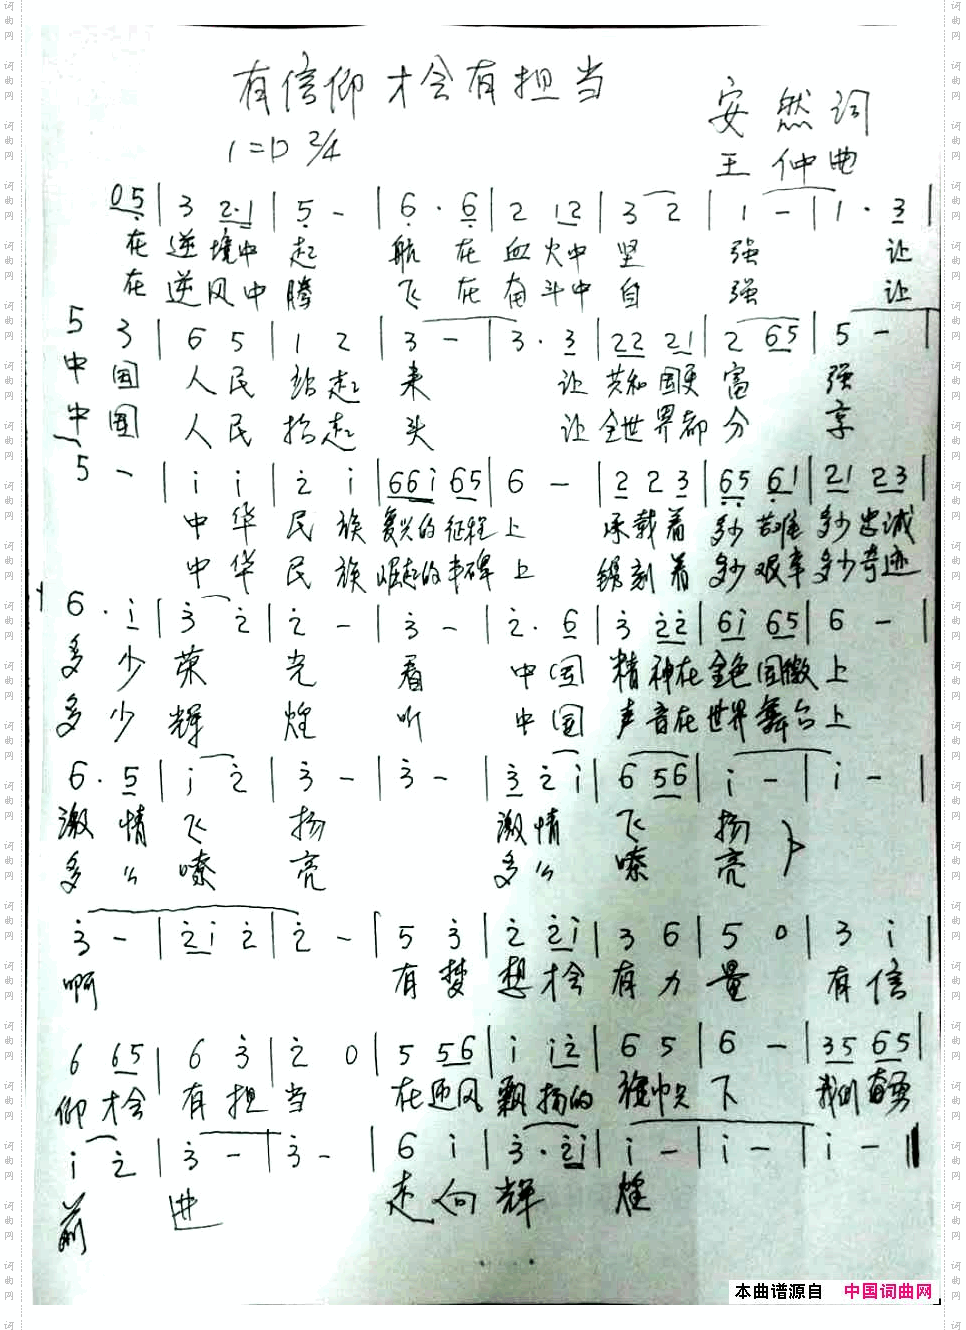 有信仰才会有担当
1=D 2/4
安然词
王仲曲
05 | 3 2·1 | 5 - | 6· 6 | 2 12 | 3 2 | 1 - | 1· 3 |
在逆境中起 航在血火中坚 强 让
在逆风中腾 飞在奋斗中自 强 让
5 3 | 6 5 | 1 2 | 3 - | 3· 3 | 22 21 | 2 65 | 5 - |
中国 人民站起来 让共和国更富 强
中国 人民抬起头 让全世界都分 享
5 - | i i | 2 i | 66i 65 | 6 - | 2 2 3 | 65 61 | 21 23 |
中华民族复兴的征程上 承载着多少苦难多少忠诚
中华民族崛起的丰碑上 镌刻着多少艰辛多少奇迹
6· i | 3 2 | 2 - | 3 - | 2· 6 | 3 22 | 6i 65 | 6 - |
多少荣光 看 中国精神在金色国徽上
多少辉煌 听 中国声音在世界舞台上
6· 5 | i 2 | 3 - | 3 - | 3 2 i | 6 56 | i - | i - |
激情飞扬 激情飞扬
多么嘹亮 多么嘹亮
3 - | 2i 2 | 2 - | 5 3 | 2 2i | 3 6 | 5 0 | 3 i |
啊 有梦想才会有力量 有信
6 65 | 6 3 | 2 0 | 5 56 | i i2 | 6 5 | 6 - | 35 65 |
仰才会有担当 在逆风飘扬的旗帜下 我们奋勇
i 2 | 3 - | 3 - | 6 i | 3· 2i | i - | i - | i - ‖
前 进 走向辉 煌
本曲谱源自 中国词曲网